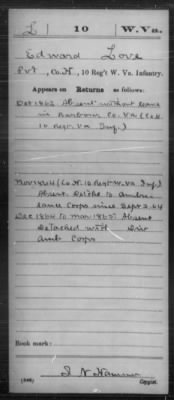 L | 10 | W. Va.
Edward Love
Pvt., Co. H, 10 Reg't W. Va. Infantry.
Appears on Returns as follows:
Oct 1863, Absent without leave
in Barbour Co. Va (Co H
10 Regt. Va Inf.)
Nov 1864 (Co H. 10 Regt W. Va Inf.)
Absent. Det'chd to Ambu-
lance Corps since Sept 2. 64
Dec 1864 to Mar 1865: Absent
Detached with Div
Amb Corps
Book mark:
(546)
Copyist.